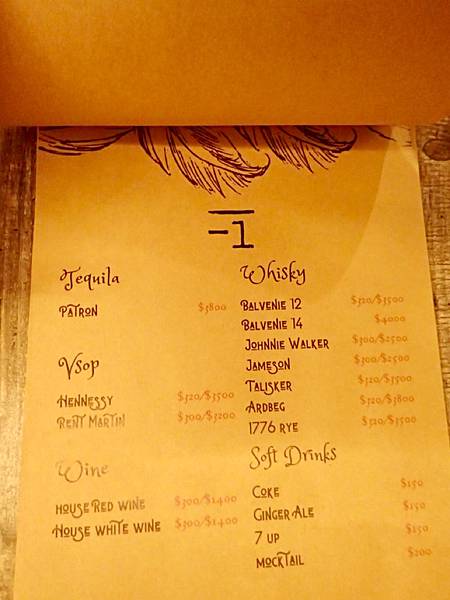 -1
Tequila
PATRON $3800
Vsop
HENNESSY $320/$3500
REMT MARTIN $300/$3200
Wine
HOUSE RED WINE $300/$1400
HOUSE WHITE WINE $300/$1400
Whisky
BALVENIE 12 $320/$3500
BALVENIE 14 $4000
JOHNNIE WALKER $300/$2500
JAMESON $300/$2500
TALISKER $320/$3500
ARDBEG $320/$3800
1776 RYE $320/$3500
Soft Drinks
COKE $150
GINGER ALE $150
7 UP $150
MOCKTAIL $200